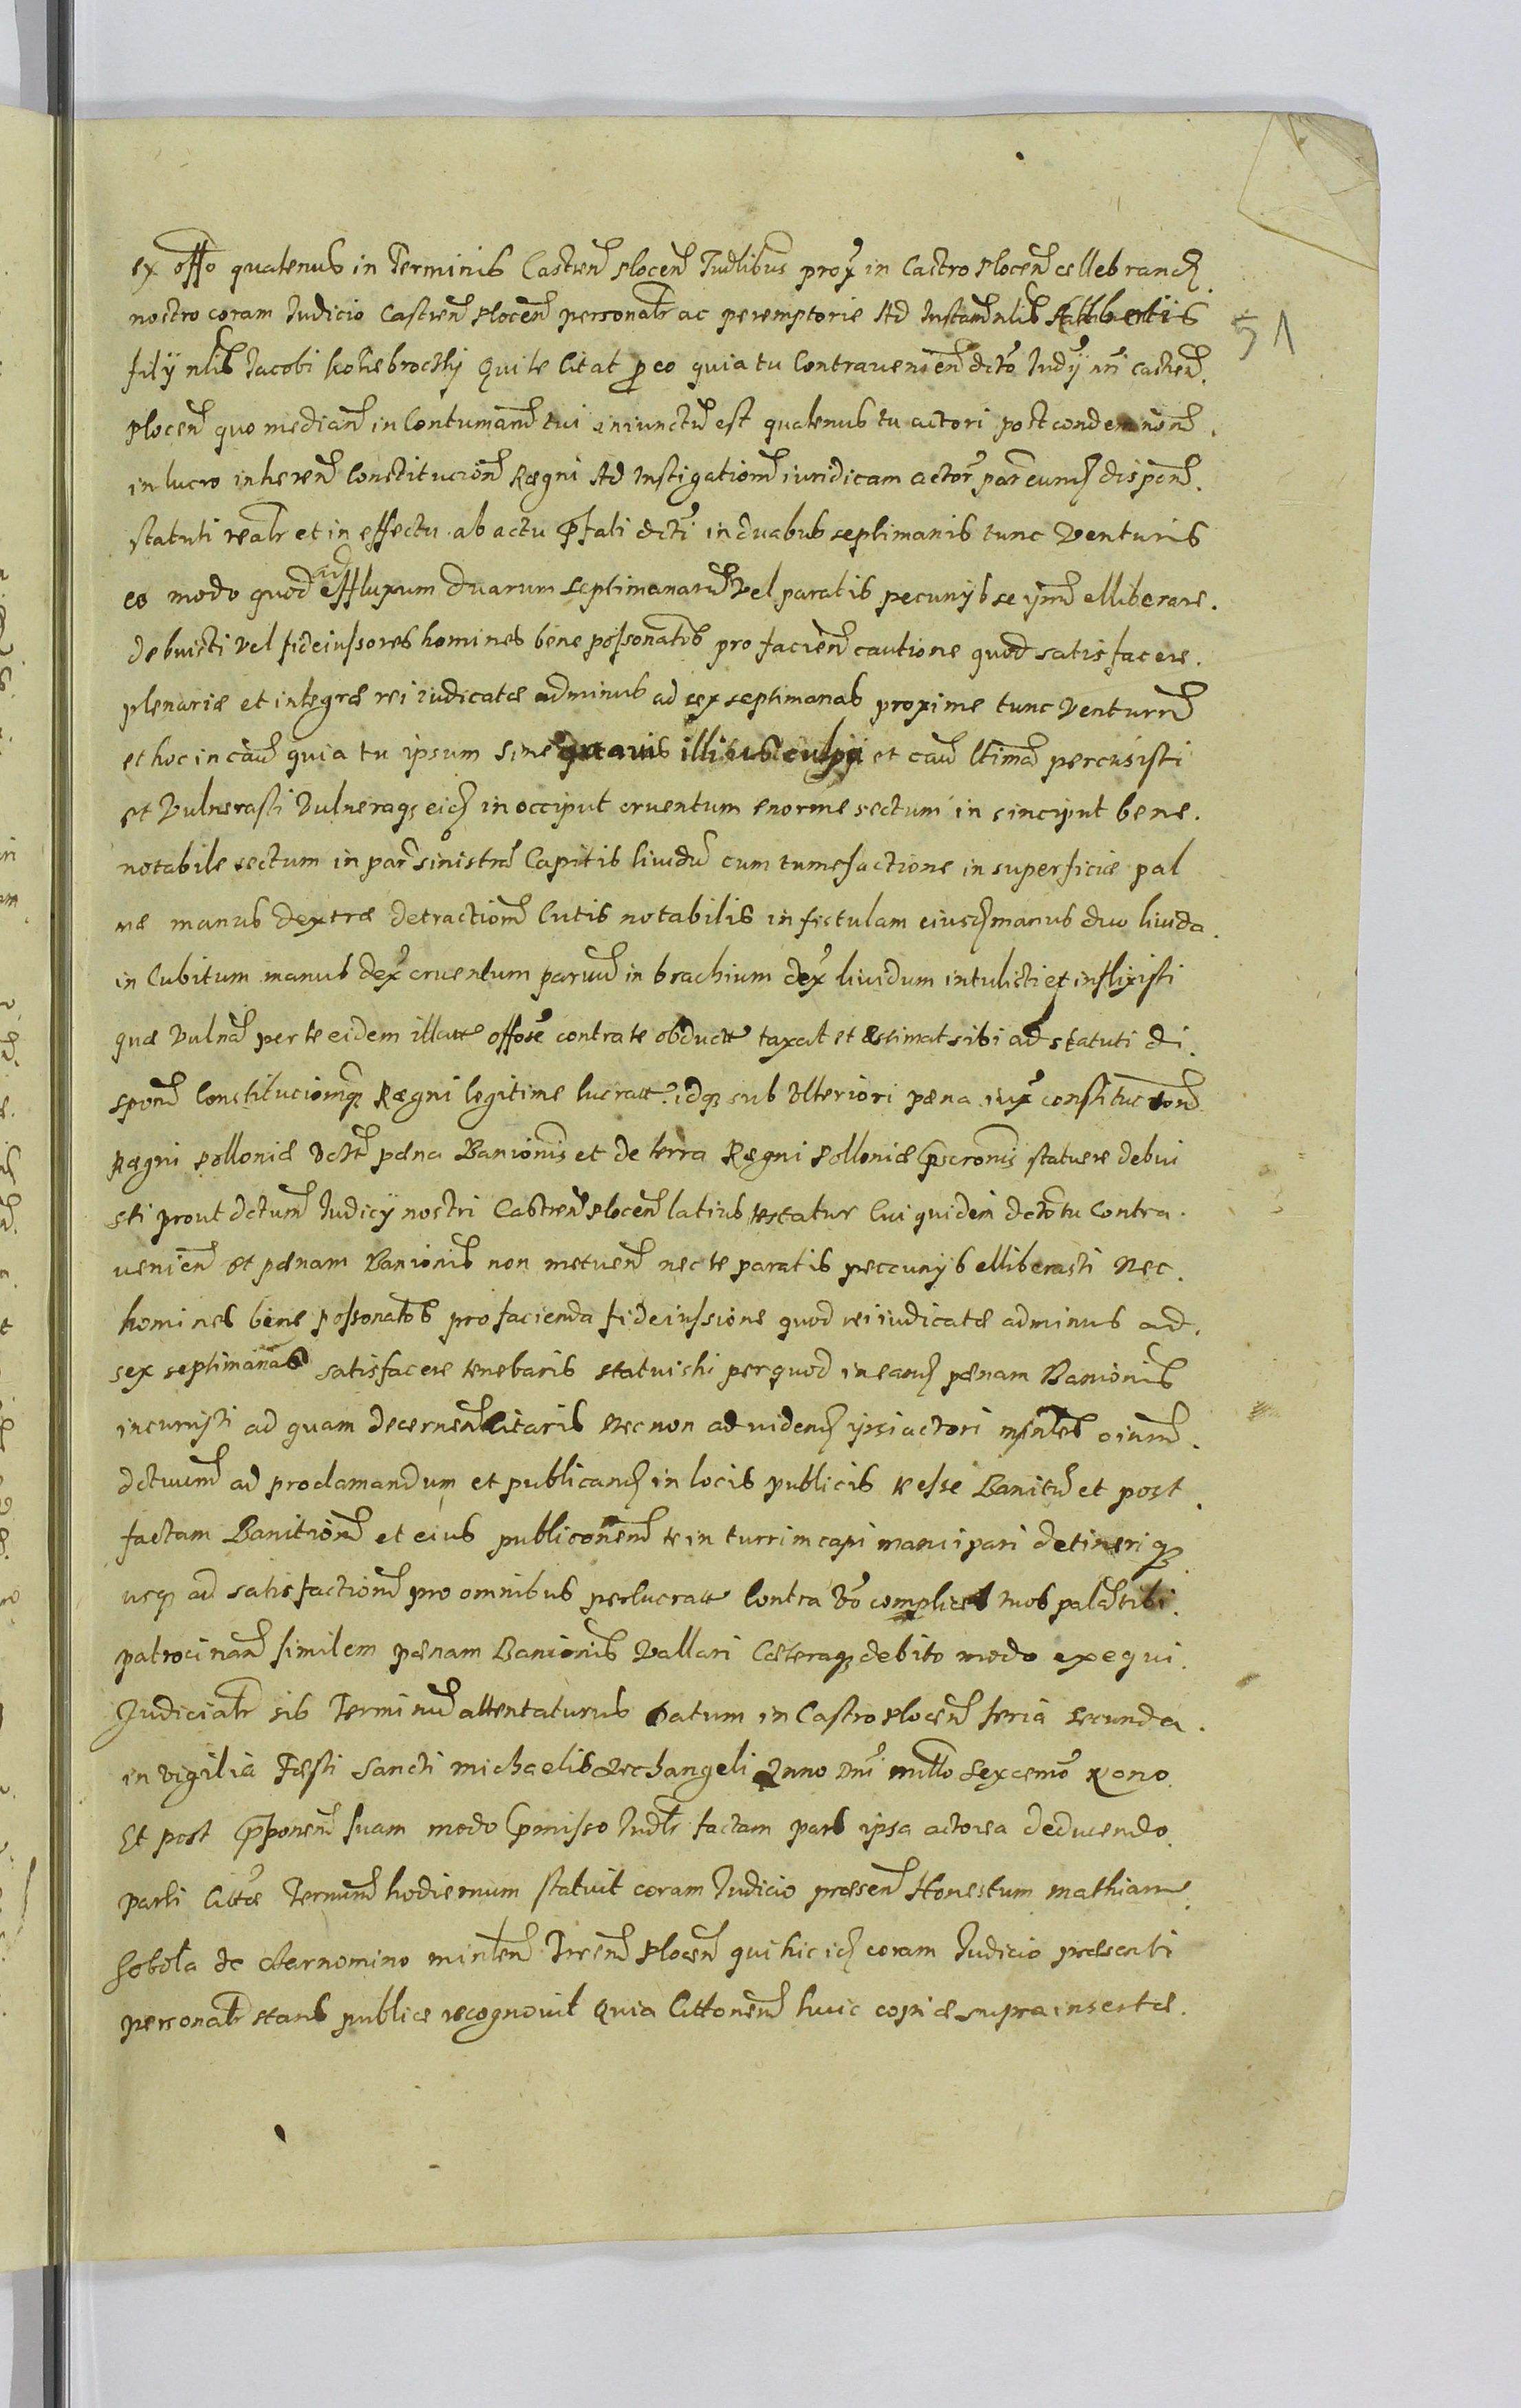 ex offo quatenus in Terminis Castren Plocen Iudlibus prox in Castro Plocen cellebrand
nostro coram Iudicio Castren Plocen personalr ac peremptorie Ad Instam nlis Adalbertis
51
filÿ nlis Iacobi Kossebrocskÿ Qui te Citat pro eo quia tu Contravenien dcto Iudÿ nri castren
Plocen quo median in Contumam tui iniunctu est quatenus tu actori post condemnonem
in lucro inheren Constitucion Rægni Ad Instigationem iuridicam actor parcium dispon
statuti realr et in effectu ab actu pntali dcti in duabus septimanis tunc Venturis
eo modo quod ad effluxum duarum septimanaru Vel paratis pecunÿs se ipm elliberare
debuisti vel fideiussores homines bene possonatos pro facien cautione quod satisfacere
plenariæ et integræ rei iudicatæ adminus ad sex septimanas proxime tunc Ventur
et hoc in cau quia tu ipsum sine quavis illius culpa et cau ltima percusisti
et Vulnerasti Vulneraq eid in occiput cruentum enorme sectum in sinciput bene
notabile sectum in par sinistra Capitis liuidu cum tumefactione in superficiæ pal
mæ manus dextræ detractionem Cutis notabilis in fistulam eiusd manus duo liuida
in Cubitum manus dex cruentum paruu in brachium dex liuidum intulisti et inflixisti
quæ Vulna per te eidem illatt offose contra te obductt taxat et æstimat sibi ad statuti di
spon Constitucionq Rægni legitime lucratt idq sub Ulteriori pæna iux constitucionem
Rægni Polloniæ Vdlt pæna Banionis et de terra Rægni Polloniæ pscronis statuere debui
sti prout dctum Iudicÿ nostri Castren Plocen latius testatur Cui quidem dcto tu Contra
venien et pænam Banionis non metuen nec te paratis peccunÿs elliberasti Nec
homines bene possonatos pro facienda fideiussione quod rei iudicatæ adminus ad
sex septimanas satisfacere tenebaris statuisti per quod in eand pænam Banionis
incurristi ad quam decernen Citaris Necnon ad videnđ ipsi actori mintles oium
dctuum ad proclamandum et publicand in locis publicis te esse Banitu et post
factam Banitionem et eius publiconem te in turrim capi mancipari detineriq
usq ad satisfactionem pro omnibus perlucratt Contra Vo complices tuos palam tibi
patrocinan similem pænam Banionis Vallari Cæteraq debito modo exequi
Iudicialr sis Terminu attentaturus Datum in Castro Plocen feria secunda
in vigilia Fæsti Sancti Michaelis Archangeli Anno Dni millo Sexcemo Nono
Et post pponem suam modo pmisso Iudlr factam pars ipsa actorea deducendo
parti Cittæ Terminu hodiernum statuit coram Iudicio præsen Honestum Mathiam
Sobota de Czarnomino minlem Tren Plocen qui hic id coram Iudicio præsenti
personalr stans publicæ recognovit Quia Cittonem huic copiæ supra insertæ